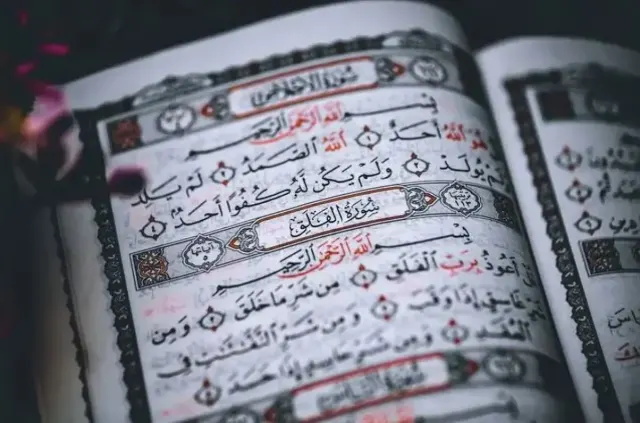 سُورَةُ الْإِخْلَاصِ
بِسْمِ اللَّهِ الرَّحْمَٰنِ الرَّحِيمِ
هُوَ اللَّهُ أَحَدٌ ۝١ اللَّهُ الصَّمَدُ ۝٢ لَمْ يَلِدْ
يُولَدْ ۝٣ وَلَمْ يَكُن لَّهُ كُفُوًا أَحَدٌ ۝٤
سُورَةُ الْفَلَقِ
بِسْمِ اللَّهِ الرَّحْمَٰنِ الرَّحِيمِ
أَعُوذُ بِرَبِّ الْفَلَقِ ۝١ مِن شَرِّ مَا خَلَقَ ۝٢ وَمِن
غَاسِقٍ إِذَا وَقَبَ ۝٣ وَمِن شَرِّ النَّفَّٰثَٰتِ فِي
الْعُقَدِ ۝٤ وَمِن شَرِّ حَاسِدٍ إِذَا حَسَدَ ۝٥
سُورَةُ النَّاسِ